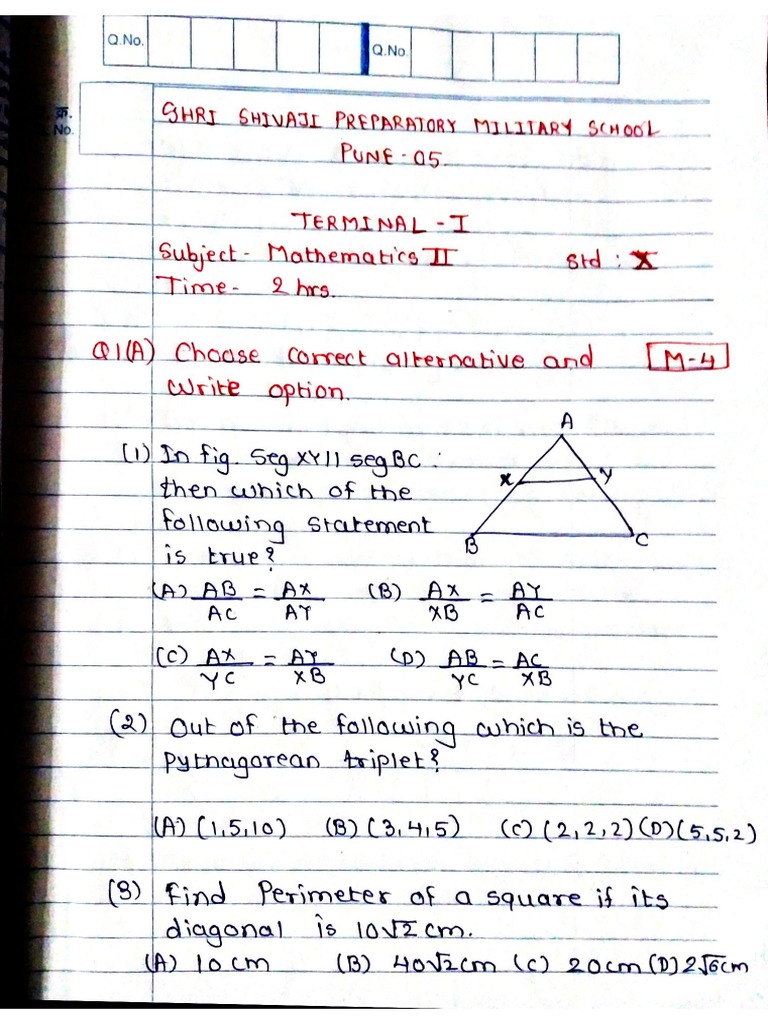 Q.No. Q.No.
क्र.
No.
SHRI SHIVAJI PREPARATORY MILITARY SCHOOL
PUNE-05.
TERMINAL - I
Subject - Mathematics II Std : X
Time - 2 hrs.
Q1(A) Choose correct alternative and M-4
write option.
A
(1) In fig. Seg XY || seg BC :
X Y
then which of the
following statement
B C
is true?
(A) AB/AC = AX/AY (B) AX/XB = AY/AC
(C) AX/YC = AY/XB (D) AB/YC = AC/XB
(2) Out of the following which is the
Pythagorean triplet?
(A) (1,5,10) (B) (3,4,5) (C) (2,2,2) (D) (5,5,2)
(3) Find Perimeter of a square if its
diagonal is 10√2 cm.
(A) 10 cm (B) 40√2 cm (C) 20 cm (D) 2√6 cm